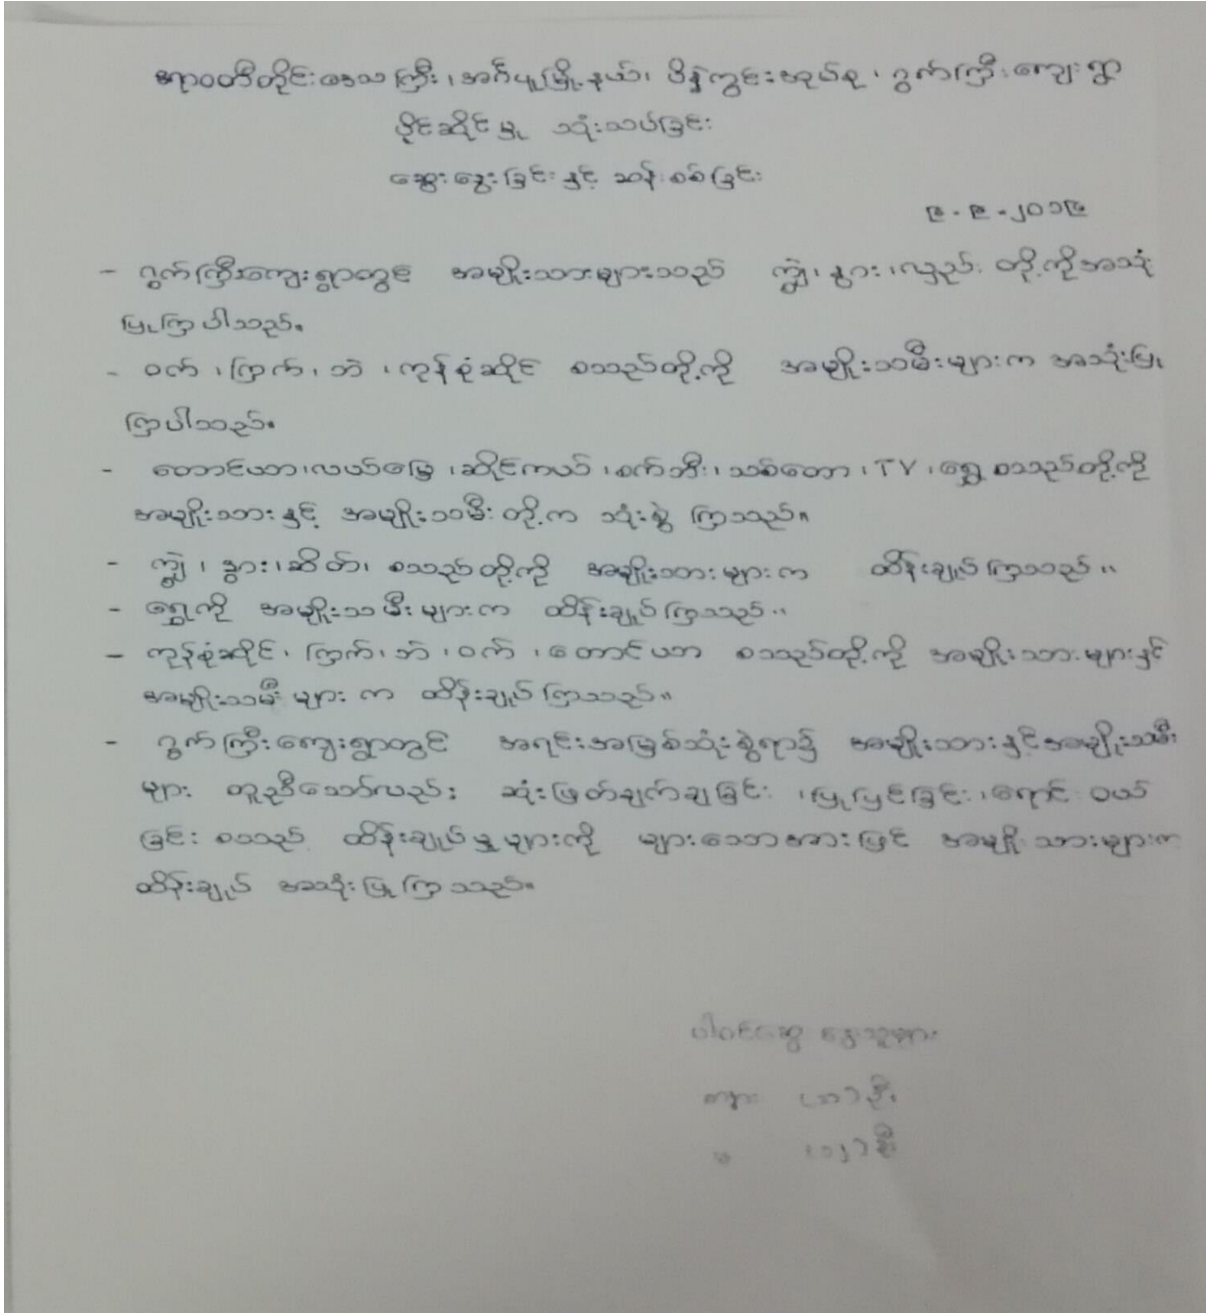 ဧရာဝတီတိုင်းဒေသကြီး၊ အင်္ဂပူမြို့နယ်၊ ပိန္နဲကွင်းအုပ်စု၊ ဂွက်ကြီးကျေးရွာ
ပိုင်ဆိုင်မှု သုံးသပ်ခြင်း
ဆွေးနွေးခြင်းနှင့် ဆန်းစစ်ခြင်း
၉-၉-၂၀၁၆
- ဂွက်ကြီးကျေးရွာတွင် အမျိုးသားများသည် ကျွဲ၊ နွား၊ လှည်း တို့ကိုအသုံး
ပြုကြပါသည်။
- ဝက်၊ ကြက်၊ ဘဲ၊ ကုန်စုံဆိုင် စသည်တို့ကို အမျိုးသမီးများက အသုံးပြု
ကြပါသည်။
- တောင်ယာ၊ လယ်မြေ၊ ဆိုင်ကယ်၊ စက်ဘီး၊ သစ်တော၊ TV၊ ရွှေ စသည်တို့ကို
အမျိုးသားနှင့် အမျိုးသမီးတို့က သုံးစွဲ ကြသည်။
- ကျွဲ၊ နွား၊ ဆိတ်၊ စသည်တို့ကို အမျိုးသားများက ထိန်းချုပ်ကြသည်။
- ရွှေကို အမျိုးသမီးများက ထိန်းချုပ်ကြသည်။
- ကုန်စုံဆိုင်၊ ကြက်၊ ဘဲ၊ ဝက်၊ တောင်ယာ စသည်တို့ကို အမျိုးသားများနှင့်
အမျိုးသမီးများက ထိန်းချုပ်ကြသည်။
- ဂွက်ကြီးကျေးရွာတွင် အရင်းအမြစ်သုံးစွဲရာ၌ အမျိုးသားနှင့်အမျိုးသမီး
များ တူညီသော်လည်း ဆုံးဖြတ်ချက်ချခြင်း၊ ပြုပြင်ခြင်း၊ ရောင်းဝယ်
ခြင်း စသည် ထိန်းချုပ်မှုများကို များသောအားဖြင့် အမျိုးသားများက
ထိန်းချုပ် အသုံးပြုကြသည်။
ပါဝင်ဆွေးနွေးသူများ
ကျား